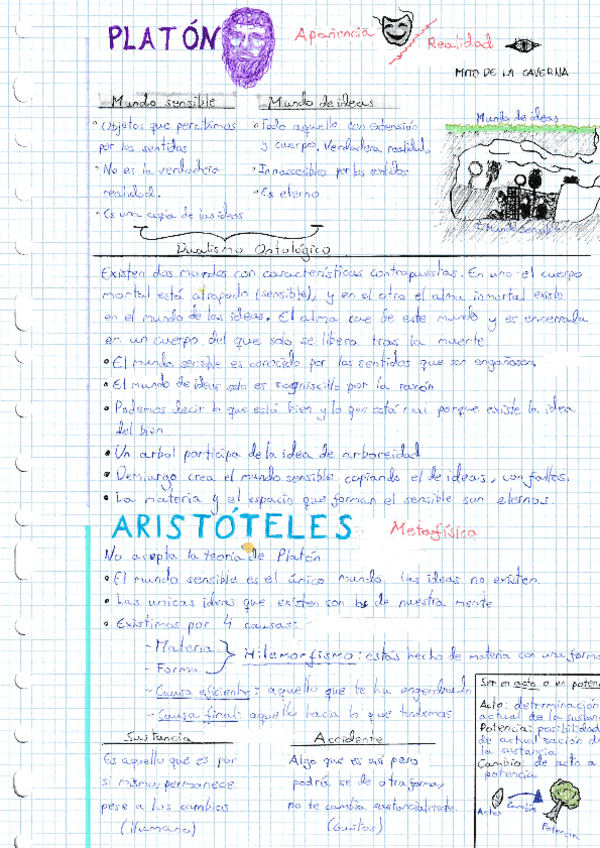 PLATÓN
Apariencia
Realidad
MITO DE LA CAVERNA
Mundo sensible
Mundo de ideas
• Objetos que percibimos
por los sentidos
• No es la verdadera
realidad.
• Es una copia de las ideas
• Todo aquello con extensión
y cuerpo. Verdadera realidad.
• Innaccesibles por los sentidos
• Es eterno
Mundo de ideas
Mundo sensible
Dualismo Ontológico
Existen dos mundos con características contrapuestas. En uno el cuerpo
mortal está atrapado (sensible), y en el otro el alma inmortal existe
en el mundo de las ideas. El alma cae de este mundo y es encerrada
en un cuerpo del que solo se libera tras la muerte
• El mundo sensible es conocido por los sentidos que son engañosos.
• El mundo de ideas solo es cogniscible por la razón
• Podemos decir lo que está bien y lo que está mal porque existe la idea
del bien
• Un arbol participa de la idea de arboreidad
• Demiurgo crea el mundo sensible copiando el de ideas, con fallos.
• La materia y el espacio que forman el sensible son eternos.
ARISTÓTELES
Metafísica
No acepta la teoría de Platón
• El mundo sensible es el único mundo, las ideas no existen.
• Las unicas ideas que existen son las de nuestra mente
• Existimos por 4 causas:
- Materia
- Forma
Hilemorfismo: estás hecho de materia con una forma
- Causa eficiente: aquello que te ha engendrado
- Causa final: aquello hacia lo que tendemos
Sustancia
Es aquello que es por
si mismo, permanece
pese a los cambios
(Humano)
Accidente
Algo que es así pero
podría ser de otra forma,
no te cambia sustancialmente.
(Gustos)
Ser en acto o en potencia
Acto: determinación
actual de la sustan
Potencia: posibilidad
de actualización de
la sustancia
Cambio: de acto a
potencia
Acto
Cambio
Potencia